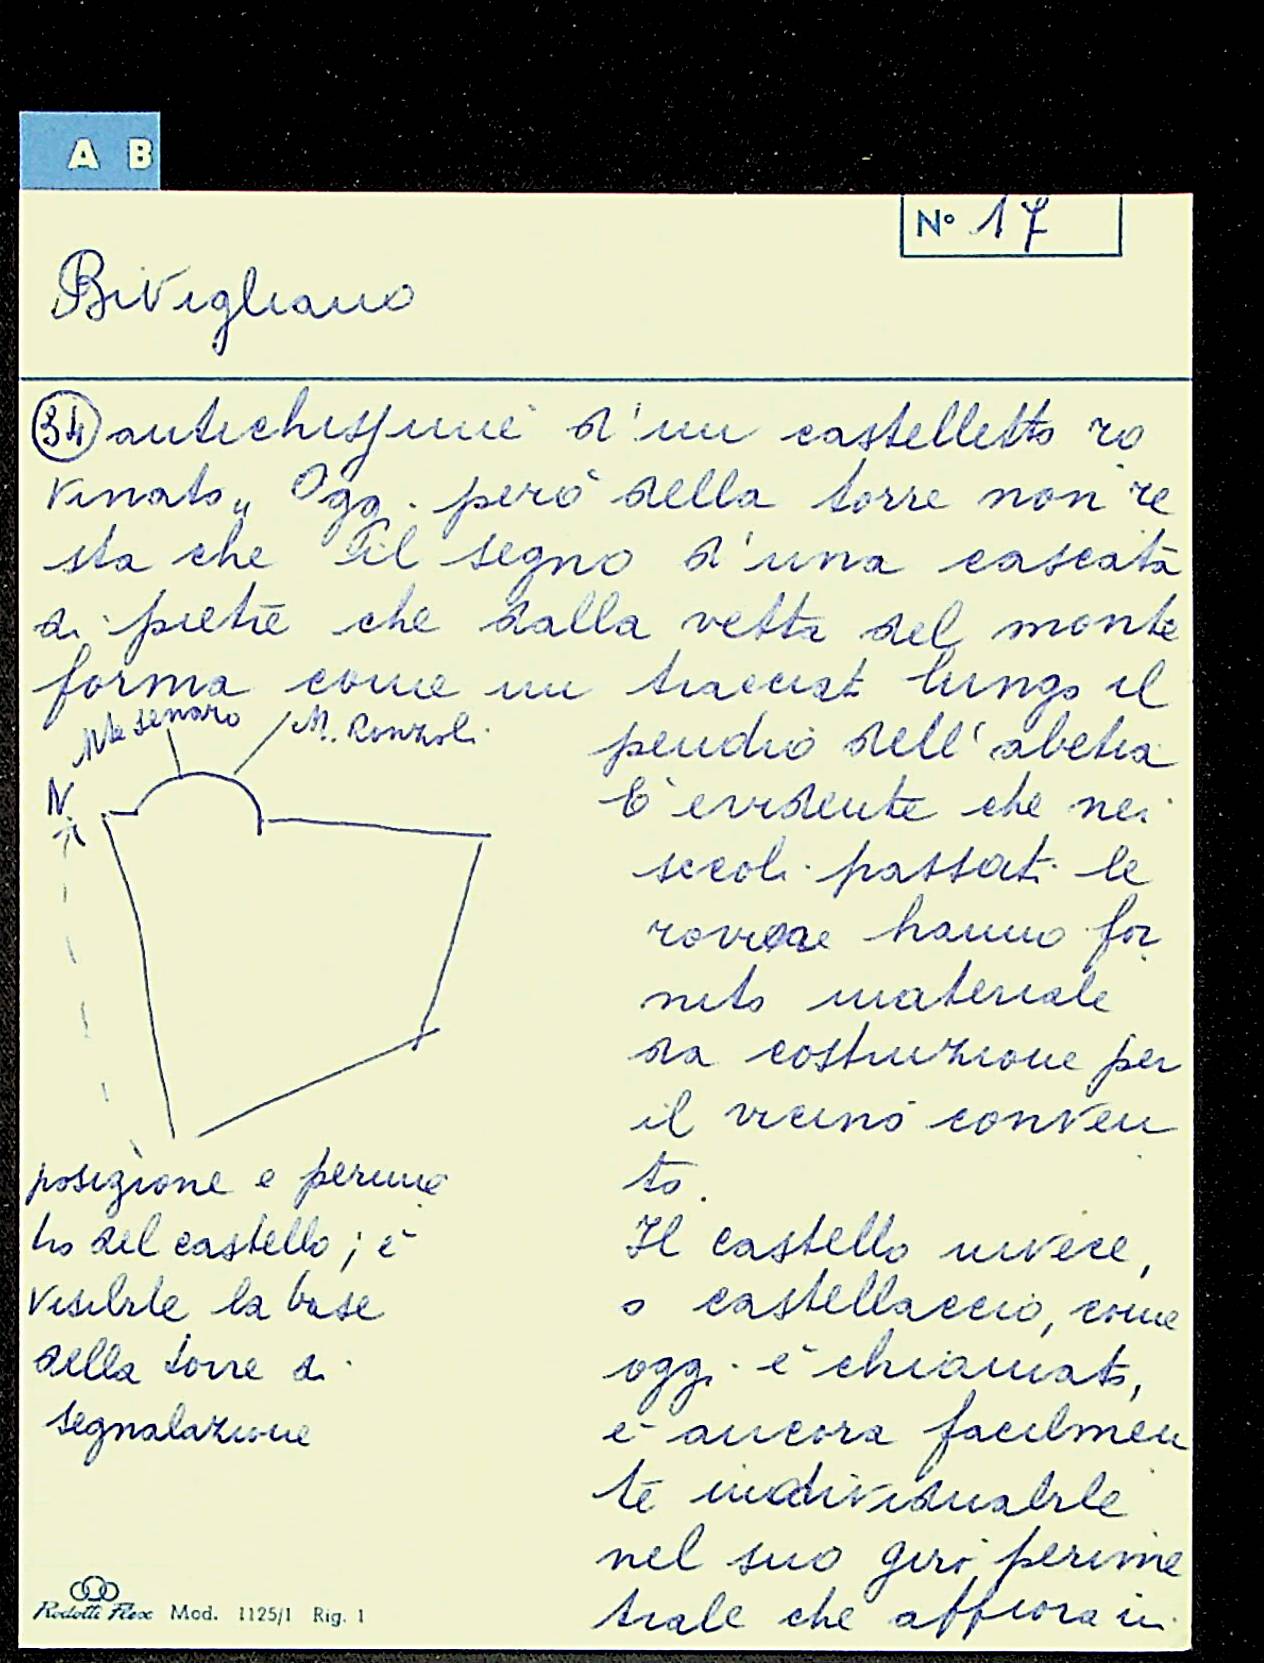 A B
N° 17
Bivigliano
34 antichissime d'un castelletto ro
vinato„ Oggi però della torre non re
sta che il segno d'una cascata
di pietre che dalla vetta del monte
forma come un tracciat lungo il
pendio dell'abetia
E' evidente che nei
secoli passati le
rovine hanno for
nito materiale
da costruzione per
il vicino conven
to.
Il castello invece,
o castellaccio, come
oggi è chiamato,
è ancora facilmen
te individuabile
nel suo giro perime
trale che affiora in
Mte Senario
M. Ronzoli
N
posizione e perime
tro del castello; è
visibile la base
della torre di
segnalazione
Rodotti Flex Mod. 1125/1 Rig. 1